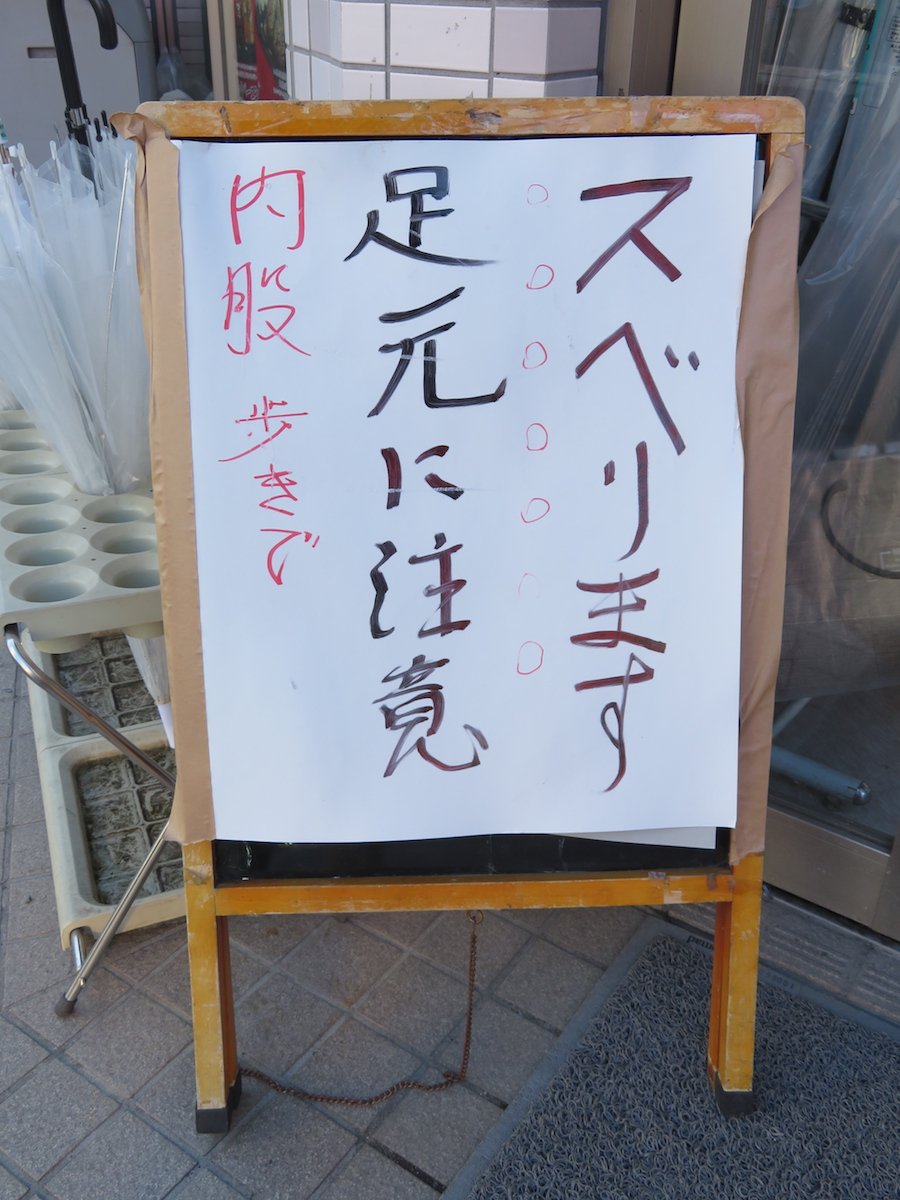 スベリます
○○○○○○○
足元に注意
内股 歩きで